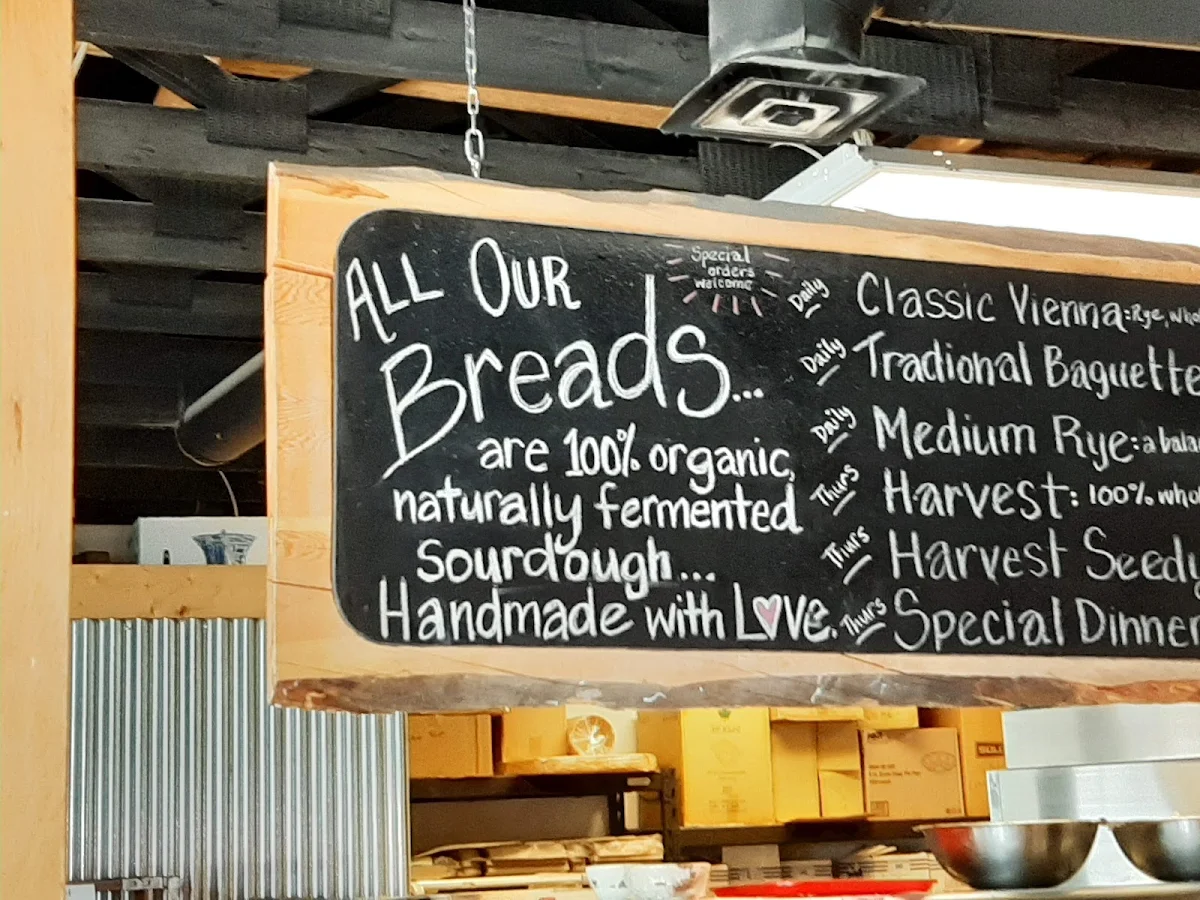 ALL OUR
Breads...
are 100% organic,
naturally fermented
Sourdough...
Handmade with Love.
Special
orders
welcome
Daily Classic Vienna: Rye, who
Daily Tradional Baguette
Daily Medium Rye: a bala
Thurs Harvest: 100% who
Thurs Harvest Seedy
Thurs Special Dinner